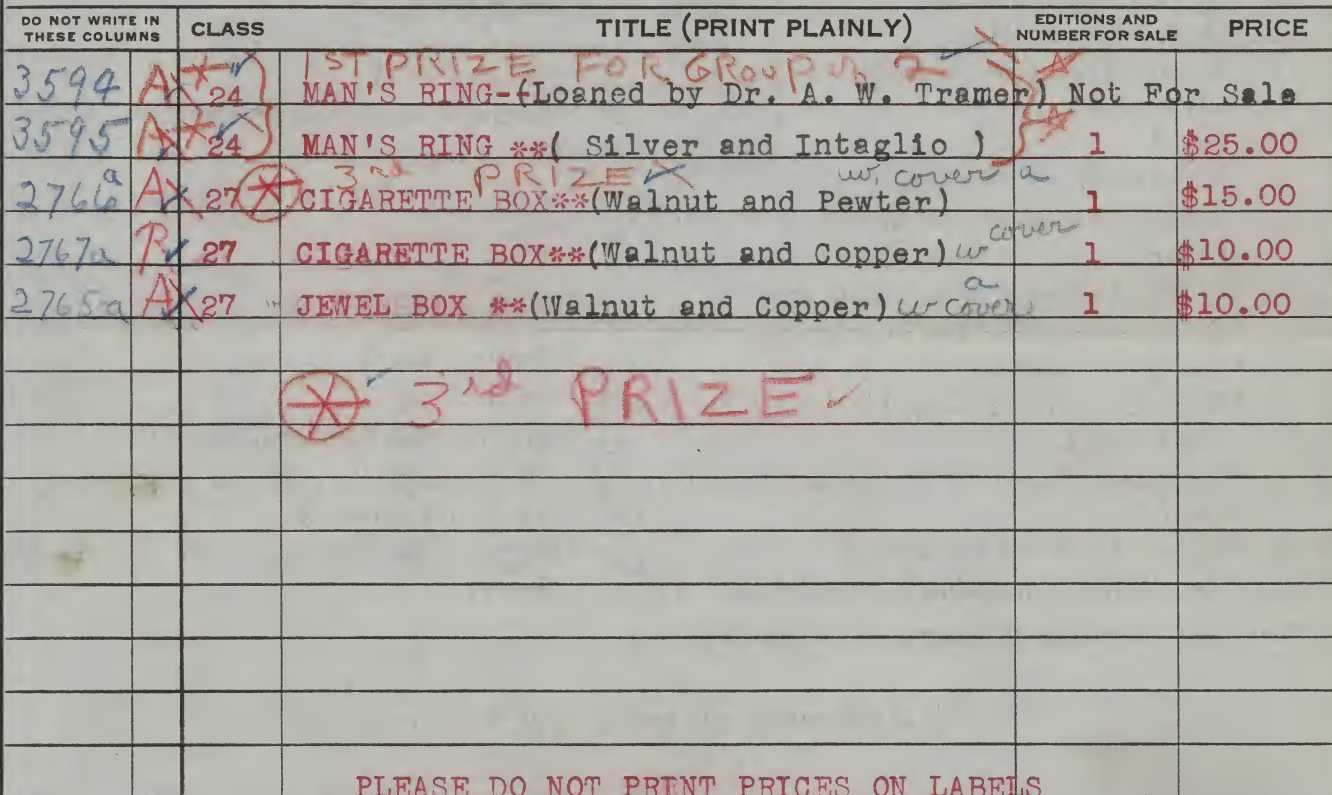 DO NOT WRITE IN THESE COLUMNS CLASS TITLE (PRINT PLAINLY) EDITIONS AND NUMBER FOR SALE PRICE
1ST PRIZE FOR GROUP of 2
3594 A 24 MAN'S RING-(Loaned by Dr. A. W. Tramer) Not For Sale
3595 A 24 MAN'S RING **( Silver and Intaglio ) 1 $25.00
3rd PRIZE w. cover a
2766a A 27 CIGARETTE BOX**(Walnut and Pewter) 1 $15.00
2767a R 27 CIGARETTE BOX**(Walnut and Copper) w cover 1 $10.00
2765a A 27 JEWEL BOX **(Walnut and Copper) w cover a 1 $10.00
3rd PRIZE
PLEASE DO NOT PRINT PRICES ON LABELS